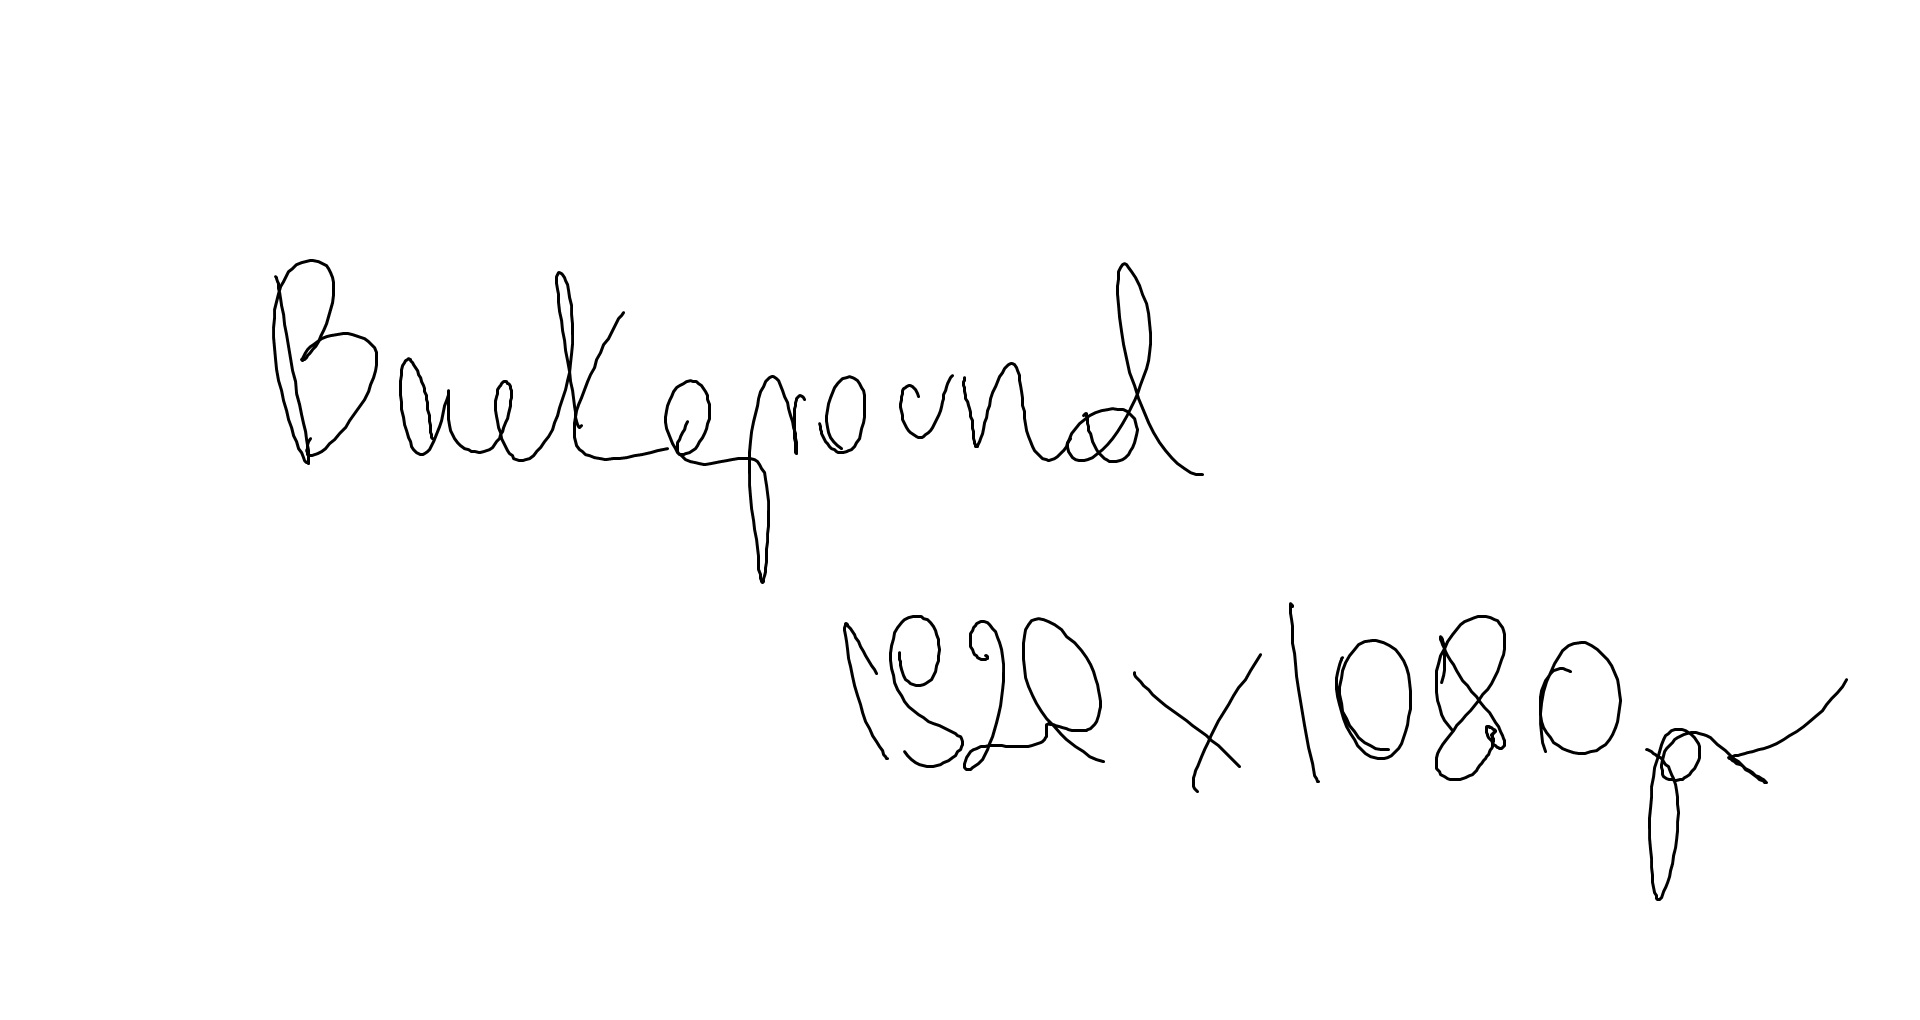 Background
1920x1080px